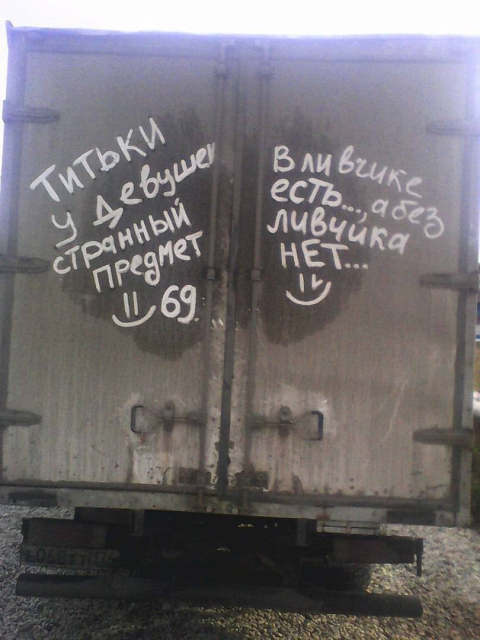 Титьки
у Девушек
странный
предмет
69.
В ливчике
есть..., а без
ливчика
НЕТ...